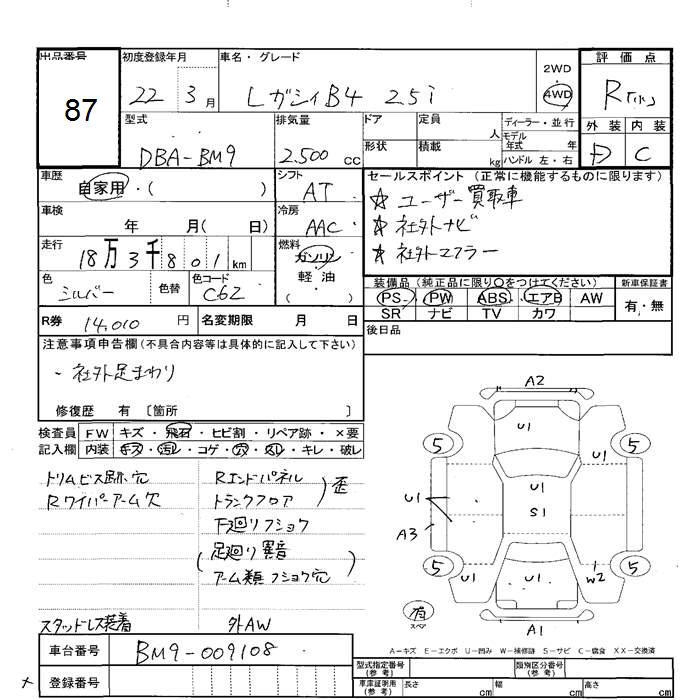 出品番号 初度登録年月 車名・グレード 2WD 評価点
87 22 3月 レガシィB4 2.5i 4WD R
外装 内装
型式 排気量 ドア 定員 人 ディーラー・並行
DBA-BM9 2.500 cc 形状 積載 kg モデル年式 年 D C
ハンドル 左・右
車歴 自家用・( ) シフト AT セールスポイント (正常に機能するものに限ります)
☆ ユーザー買取車
車検 年 月( 日) 冷房 AAC ☆ 社外ナビ
走行 18万3千801km 燃料 ガソリン 軽油 ( ) ☆ 社外マフラー
色 シルバー 色替 色コード C6Z 装備品 (純正品に限り○をつけてください) 新車保証書
PS PW ABS エアB AW 有・無
SR ナビ TV カワ
R券 14,010円 名変期限 月 日 後日品
注意事項申告欄(不具合内容等は具体的に記入して下さい)
・社外足まわり
修復歴 有 〔箇所 〕
検査員 FW キズ・飛石・ヒビ割・リペア跡・×要
記入欄 内装 キズ・汚レ・コゲ・穴・ムレ・キレ・破レ
トリムビス跡穴 Rエンドパネル
Rワイパーアーム欠 トランクフロア )歪
下廻りフショク
(足廻り異音
アーム類フショク穴)
スタッドレス装着 外AW
車台番号 BM9-009108
登録番号
A2
U1
5 5
U1
U1
U1
S1
A3
5 5
U1 U1 W2
有
スペア
A1
A-キズ E-エクボ U-凹み W-補修跡 S-サビ C-腐食 XX-交換済
型式指定番号(参考) 類別区分番号(参考)
車庫証明用(参考) 長さ cm 幅 cm 高さ cm